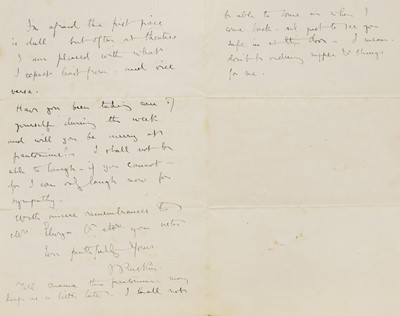 I'm afraid the first piece
is dull but often at theatres
I am pleased with what
I expect least from - and vice
versa.
Have you been taking care of
yourself during the week
and will you be merry at
pantomime? - I shall not be
able to laugh - if you cannot -
for I can only laugh now for
sympathy.
With sincere remembrances to
Ever faithfully Yours
J Ruskin
Tell mama this pantomime may
keep us a little late - I shall not
be able to come in when I
come back - but just to see you
safe in at the door - I mean
don't be ordering supper & things
for me.